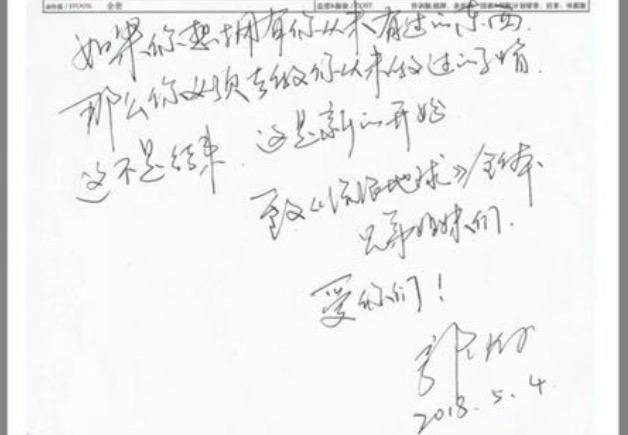 全世
如果你想拥有你从未有过的东西
那么你必须去做你从未做过的事情.
这不是结束. 这是新的开始
致《流浪地球》全体
兄弟姐妹们.
爱你们！
2018. 5. 4.